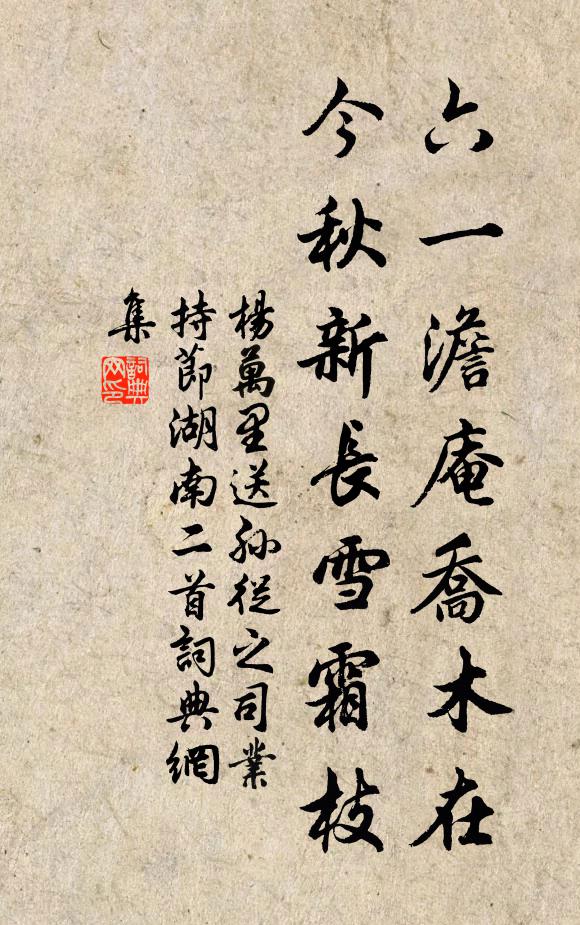 六一澹庵喬木在
今秋新長雪霜枝
楊萬里送孫從之司業
持節湖南二首詞典網
集
詞典
网印